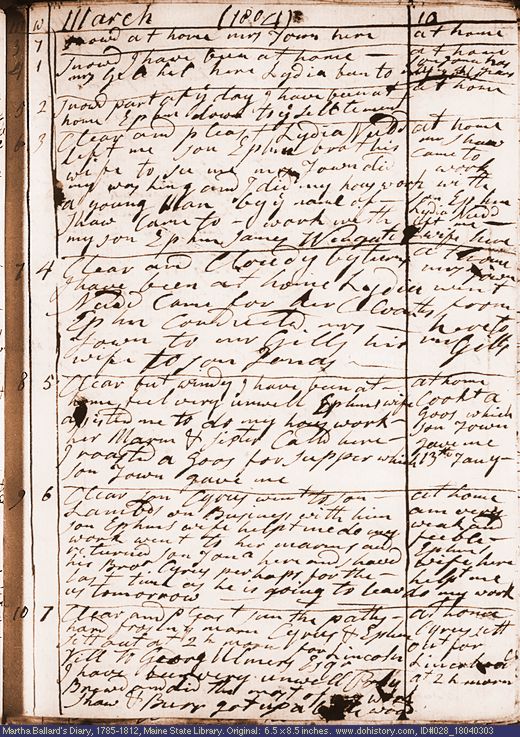 March (1804) 10
3 7 Snowd at home mrs Town here at home
4 1 Snowd I have been at home - at home
mrs Gill here Lydia
5 2 Snowd part of ye day I have been at at home
home Ephm down to ye settlement
6 3 Clear and pleast Lydia Nudd at home
left me son Ephm brot his mr Shaw
wife to see me mrs Town did came to
my washing and I did my housework work with
a young man by ye name of son Ephm
Shaw came to work with Lydia Nudd
my son Ephm James Wingate
7 4 Clear and Cloudy by turns at home
I have been at home Lydia went
Nudd came for her Cloaths from
Ephm Conducted mrs here to
Town to mr Gills his mr Gills
wife to son Jonas
8 5 Clear but windy I have been at at home
home feel very unwell Ephms wife Cookt a
assisted me to do my house work goos which
her Marm & sister Calld here son Town
I roasted a Goos for supper which gave me
son Town gave me 13th Jany
9 6 Clear son Cyrus went to son at home
Lambds on Business with him am very
son Ephms wife helpt me do my weak &
work went to her marms and feeble
returned son Jona here and shaved Ephms
his Bror Cyrus perhaps for the wife here
last time as he is going to leave help me
us tomorrow do my work
10 7 Clear and pleast sun the paths at home
Cyrus & Ephm Cyrus sett
sett out at 2 h morn for Lincoln out for
Vill to George Ulmers Esqr Lincolnvil
I have been very unwell Today at 2 h morn
Brewd and did the most of my work
Shaw & Burr got up a
Martha Ballard's Diary, 1785-1812, Maine State Library. Original: 6.5 x 8.5 inches. www.dohistory.com, ID#028_18040303